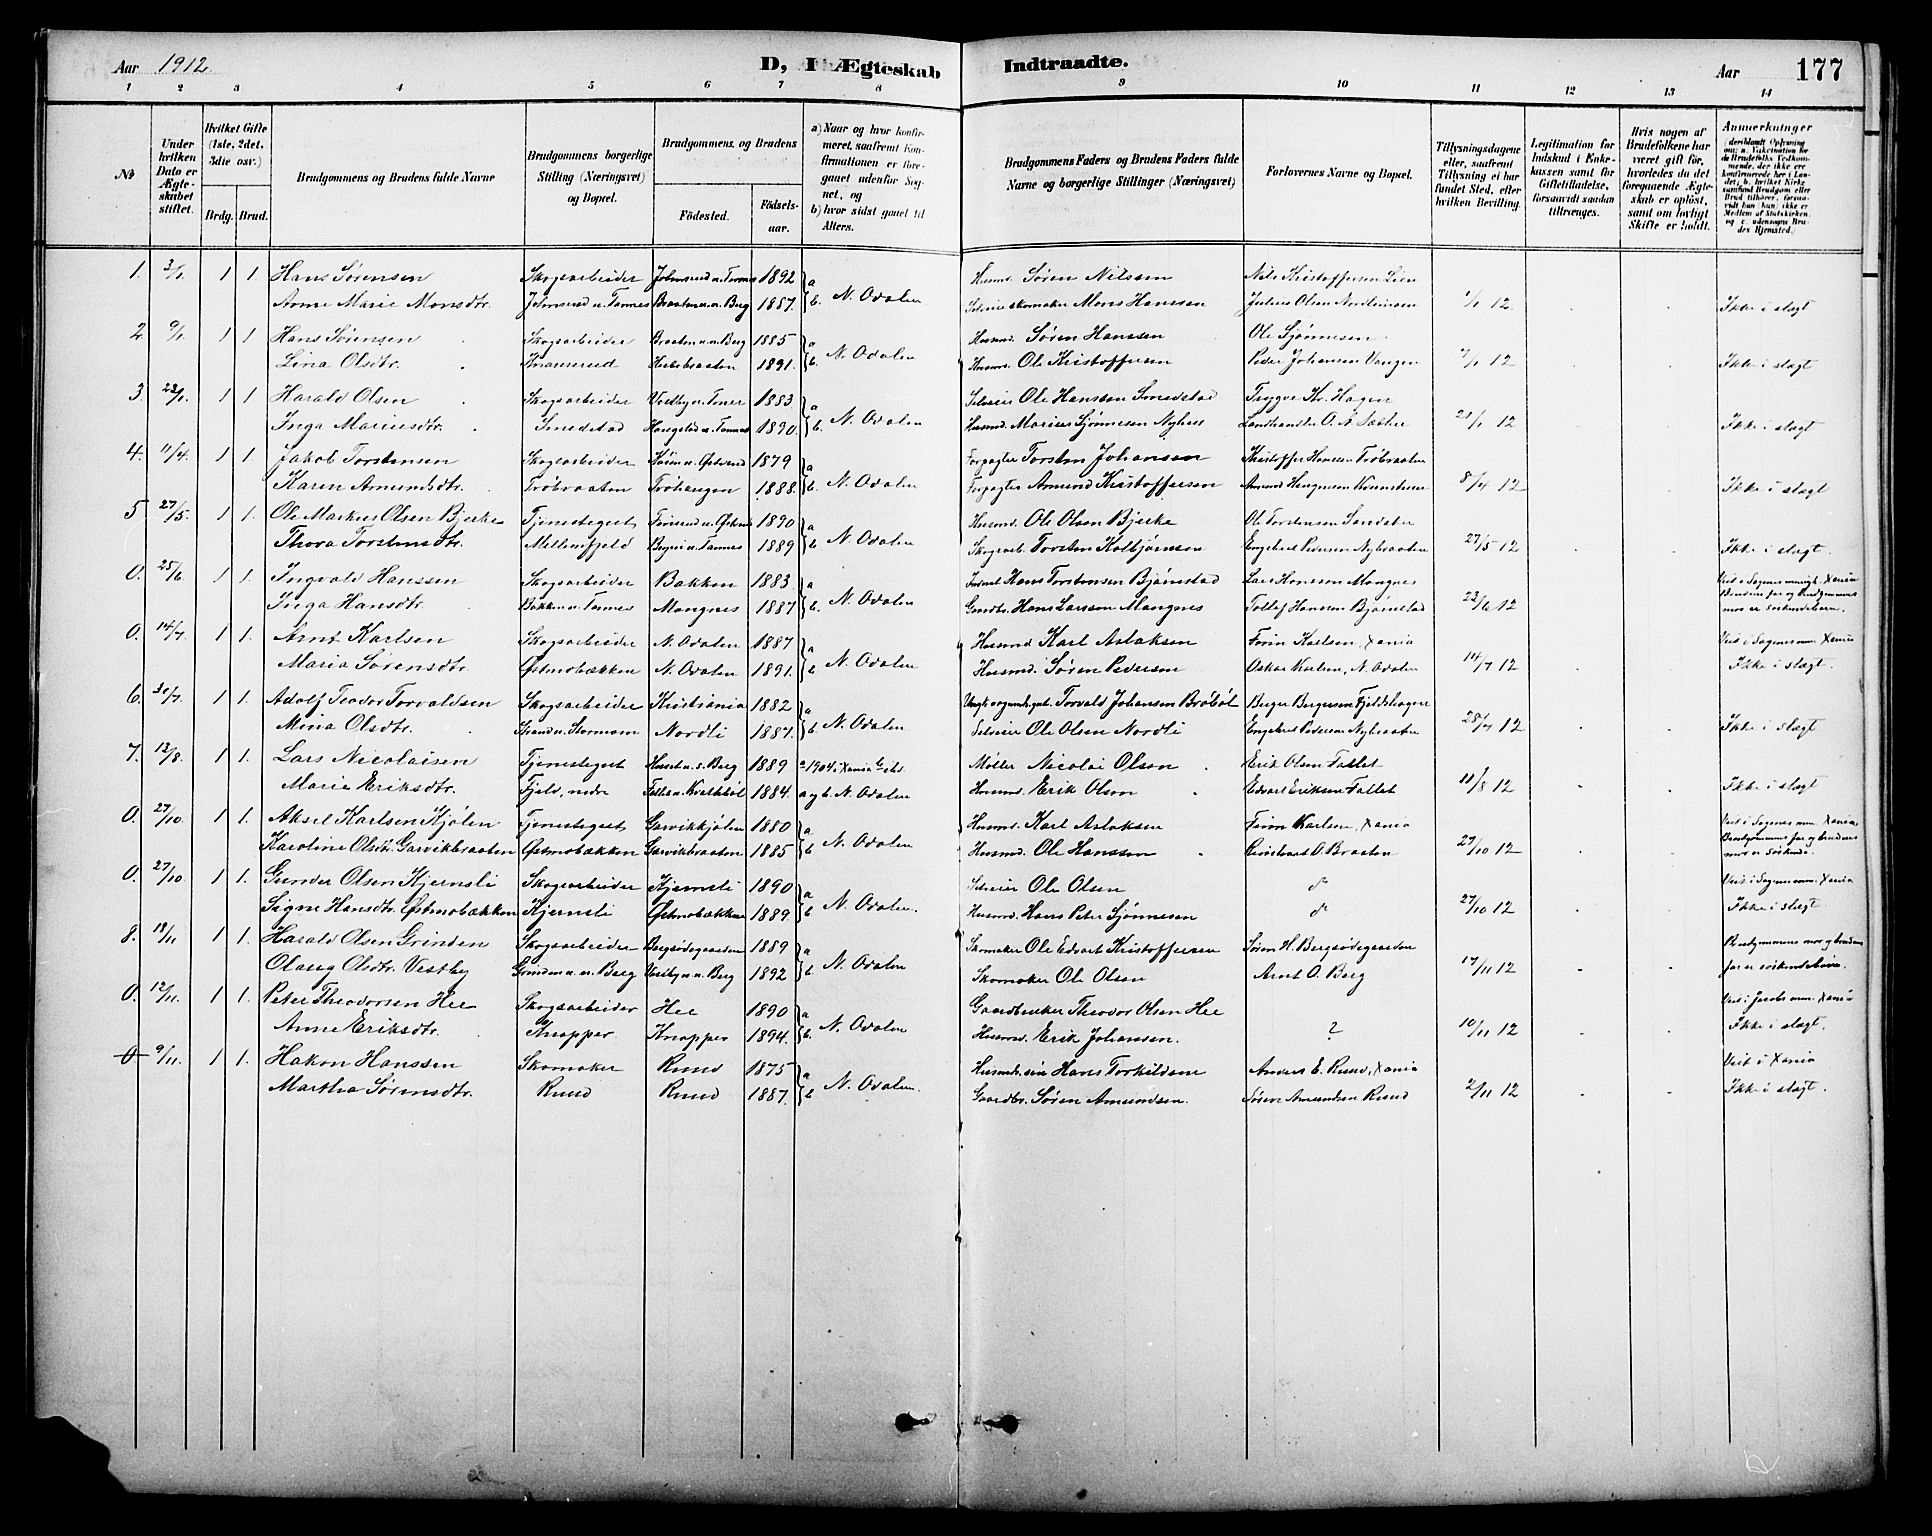 Aar 1912
D, I Ægteskab Indtraadte.
Aar 177
1 2 3 4 5 6 7 8 9 10 11 12 13 14
No
Under hvilken Dato er Ægteskabet stiftet.
Hvilket Gifte (1ste, 2det, 3die osv.)
Brdg. Brud.
Brudgommens og Brudens fulde Navne
Brudgommens borgerlige Stilling (Næringsvei) og Bopæl.
Brudgommens og Brudens
Fødested. Fødselsaar.
a) Naar og hvor konfirmeret, saafremt Konfirmationen er foregaaet udenfor Sognet, og
b) hvor sidst gaaet til Alters.
Brudgommens Faders og Brudens Faders fulde Navne og borgerlige Stillinger (Næringsvei)
Forlovernes Navne og Bopæl.
Tillysningsdagene eller, saafremt Tillysning ei har fundet Sted, efter hvilken Bevilling.
Legitimation for Indskud i Enkekassen samt for Giftetilladelse, forsaavidt saadan tiltrænges.
Hvis nogen af Brudefolkene har været gift før, hvorledes da det foregaaende Ægteskab er opløst, samt om lovligt Skifte er holdt.
Anmerkninger
1. 3/1 1 1. Hans Sørensen Skogsarbeider Johnsrud u. Tannes 1892 a Husmd. Søren Nilssen Nils Kristoffersen Lien
Anne Marie Monsdtr. Johnsrud u. Tannes Braaten u. n. Berg 1887. b. N. Odalen Selveier skomaker Mons Hanssen Julius Olsen 1/1 12 Ikke i slægt
2 9/1 1 1 Hans Sørensen Skogsarbeider Braaten u. n. Berg 1885 a Husmd. Søren Hanssen Ole Sjønnesen
Lina Olsdtr. Knauserud 1891. b. N. Odalen Husmd. Ole Kristoffersen Peder Johansen Vangen 7/1 12 Ikke i slægt
3. 22/1 1 1 Harald Olsen Skogsarbeider 1883. a Selveier Ole Hanssen Smedstad Trygve Kr. Hagen
Inga Mariusdtr. Smedstad 1890. b. N. Odalen Husmd. Marius Sjønnesen Nyhus Landhandler O. A. Sæther 21/1 12 Ikke i slægt
4. 11/4 1 1. Jakob Torstensen Skogsarbeider 1879 a Forpagter Torsten Johansen Kristoffer Hansen Trøbraaten
Karen Amundsdtr. Trøbraaten Trøhaugen 1888. b. N. Odalen Forpagter Amund Kristoffersen Amund 8/4 12 Ikke i slægt
5 27/5 1 1. Ole Markus Olsen Bjerke Tjenestegut 1890 a Husmd. Ole Olsen Bjerke Ole Torstensen
Thora Torstensdtr. Mellemfjeld 1889 b N. Odalen Skogsarb. Torsten Kolbjørnsen Engebret Pedersen Nybraaten 27/5 12 Ikke i slægt.
0. 25/6 1 1. Ingvald Hanssen Skogsarbeider Bakken 1883 a Hans Torstensen Bjørnstad Lars Hanssen Mangnes Viet i Sagenes menigh. Xania
Inga Hansdtr. Bakken u. Tannes Mangnes 1887 b. N. Odalen Gaardbr. Hans Larssen Mangnes Tollef Hanssen Bjørnstad 23/6 12 Brudens far og Brudgommens mor er søskendebarn.
0. 14/7 1 1. Arnt Karlsen Skogsarbeider N. Odalen 1887 a Husmd Karl Aslaksen Karlsen, Xania Viet i Sagenes m. Xania
Maria Sørensdtr. Østmobækken N. Odalen 1891. b N. Odalen Husmd. Søren Pedersen Oskar Karlsen, N. Odalen 14/7 12 Ikke i slægt.
6. 30/7 1 1. Adolf Teodor Torvaldsen Skogsarbeider Kristiania 1882 a Torvald Johansen Brøbøl Berger Bergersen Fjeldshagen
Mina Olsdtr. Strand u. Stormoen Nordli 1887. b N. Odalen Selveier Ole Olsen Nordli Engebret Pedersen Nybraaten 28/7 12 Ikke i slægt
7. 13/8 1 1. Lars Nicolaisen Tjenestegut 1889 a 1904 i Xania Møller Nicolai Olsen Erik Olsen Fallet
Marie Eriksdtr. Fjeld, nedre 1884. a og b. N. Odalen Husmd. Erik Olsen Edvart Eriksen Fallet 11/8 12 Ikke i slægt
0. 27/10 1 1. Aksel Karlsen Kjølen Tjenestegut Garvikkjølen 1880 a Husmd. Karl Aslaksen Karlsen, Xania Viet i Sagenes m. Xania
Karoline Olsdtr. Garvikbraaten Østmobækken Garvikbraaten 1885 b N. Odalen Husmd. Ole Hanssen Reinhart O. Braaten 27/10 12 Brudgommens far og brudens mor er søskende.
0. 27/10 1 1. Gunder Olsen Kjernsli Skogsarbeider Kjernsli 1890 a Selveier Ole Olsen do Viet i Sagenes m. Xania
Signe Hansdtr. Østmobækken Kjernsli Østmobækken 1889. b N. Odalen. Husmd. Hans Peter Sjønnesen do 27/10 12 Ikke i slægt.
8. 18/11 1 1. Harald Olsen Grinden Skogsarbeider Bergsødegaarden 1889 a Skomaker Ole Edvart Kristoffersen Søren H. Bergsødegaarden Brudgommens mor og brudens
Olaug Olsdtr. Vestby Grinden u. n. Berg Vestby u. n. Berg 1892 b N. Odalen Skomaker Ole Olsen Arnt O. Berg 17/11 12 far er søskendebarn.
0. 12/11. 1 1. Peter Theodorsen Hee Skogsarbeider Hee 1890 a Gaardbruker Theodor Olsen Hee Viet i Jacobs m. Xania
Anne Eriksdtr. Knapper Knapper 1894. b. N. Odalen Husmd. Erik Johansen. ? 10/11 12 Ikke i slægt.
0 9/11. 1 1. Hakon Hanssen Skomaker Ruud 1875 a Husmd. Hans Torkildsen Anders E. Ruud, Xania Viet i Xania
Martha Sørensdtr. Ruud Ruud 1887. b N. Odalen. Gaardbr. Søren Amundsen. Søren Amundsen Ruud 2/11 12 Ikke i slægt.